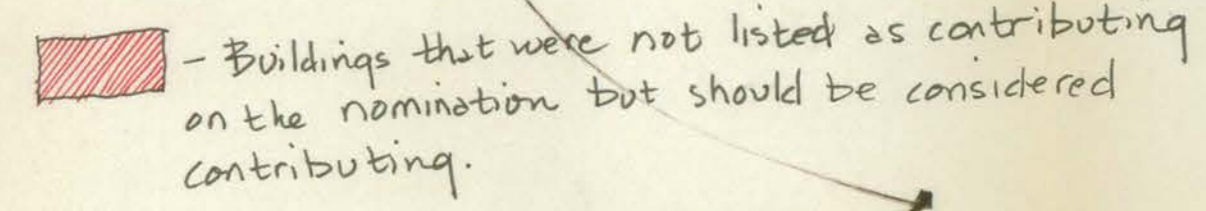 - Buildings that were not listed as contributing
on the nomination but should be considered
contributing.